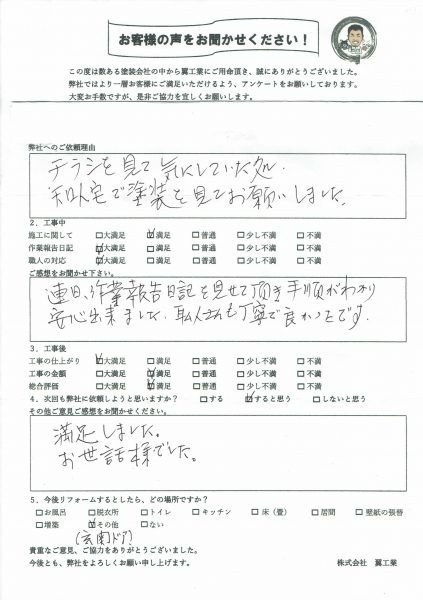 お客様の声をお聞かせください！
この度は数ある塗装会社の中から翼工業にご用命頂き、誠にありがとうございました。
弊社ではより一層お客様にご満足いただけるよう、アンケートをお願いしております。
大変お手数ですが、是非ご協力を宜しくお願いします。
弊社へのご依頼理由
チラシを見て気にしていた処.
知人宅で塗装を見てお願いしました.
２．工事中
施工に関して □大満足 ☑満足 □普通 □少し不満 □不満
作業報告日記 ☑大満足 □満足 □普通 □少し不満 □不満
職人の対応 ☑大満足 □満足 □普通 □少し不満 □不満
ご感想をお聞かせ下さい。
連日、作業報告日記を見せて頂き手順がわかり
安心出来ました. 職人さんも丁寧で良かったです.
３．工事後
工事の仕上がり ☑大満足 □満足 □普通 □少し不満 □不満
工事の金額 □大満足 ☑満足 □普通 □少し不満 □不満
総合評価 □大満足 ☑満足 □普通 □少し不満 □不満
４．次回も弊社に依頼しようと思いますか？ □する ☑すると思う □しないと思う
その他ご意見ご感想をお聞かせください。
満足しました。
お世話様でした。
５．今後リフォームするとしたら、どの場所ですか？
□お風呂 □脱衣所 □トイレ □キッチン □床（畳） □居間 □壁紙の張替
□増築 ☑その他 □ない
(玄関ドア)
貴重なご意見、ご協力をありがとうございました。
今後とも、弊社をよろしくお願い申し上げます。 株式会社 翼工業